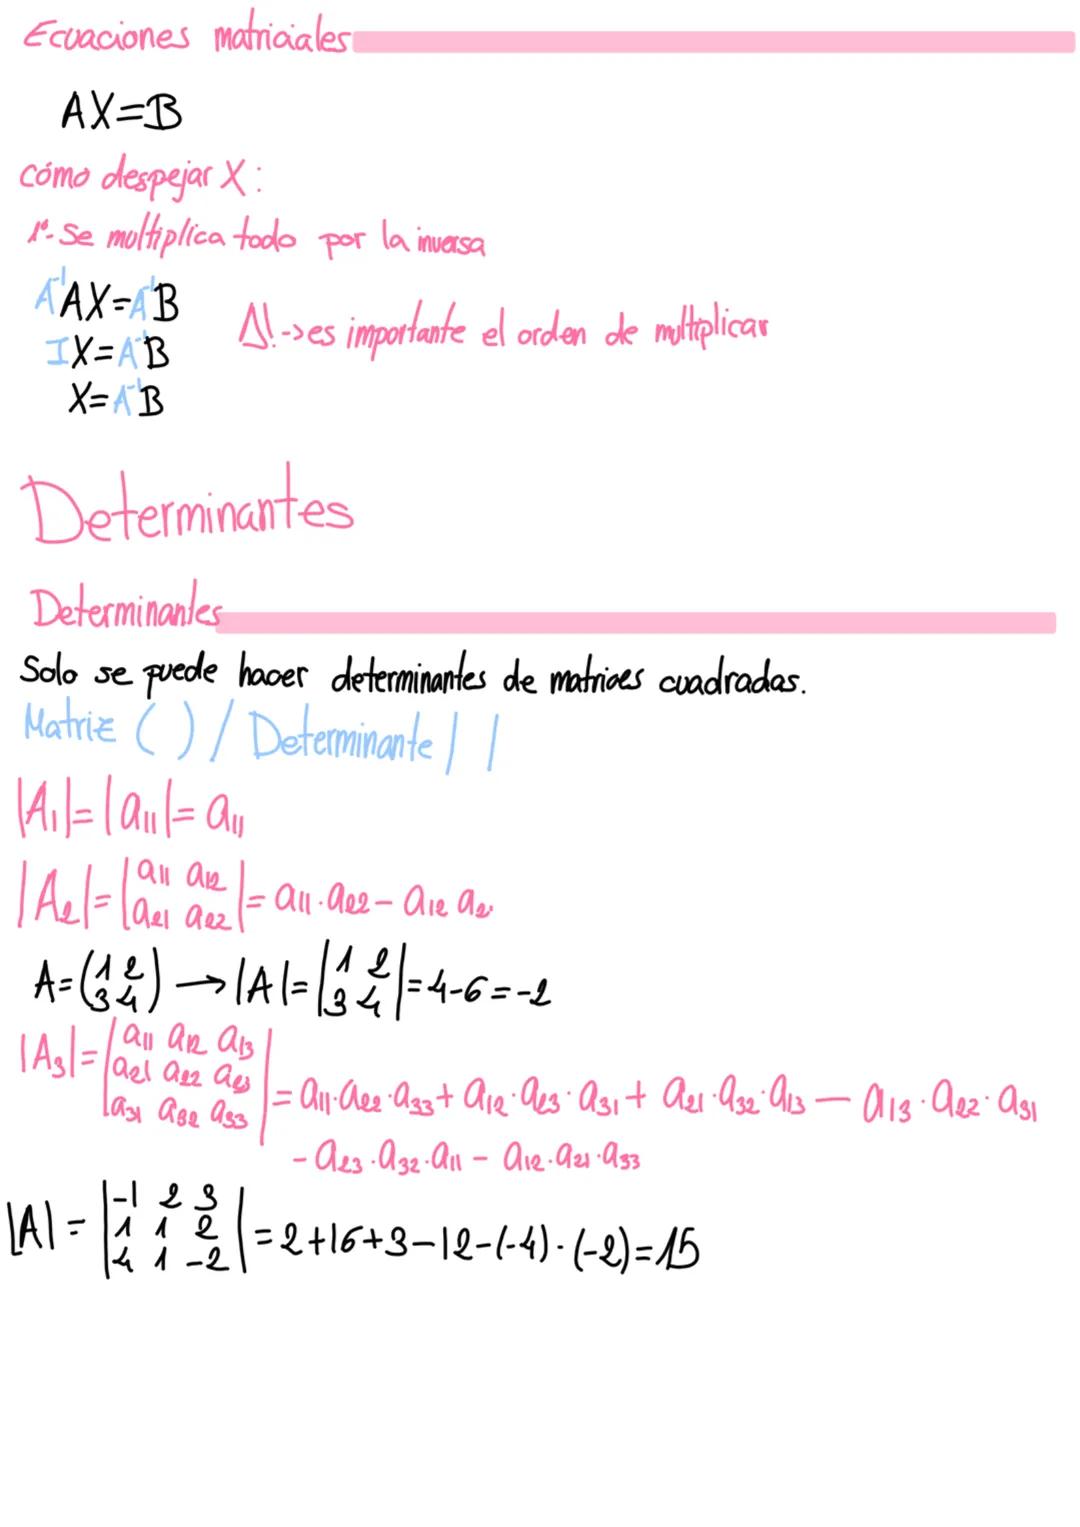 Ecuaciones matriciales
AX=B
cómo despejar X:
1º- Se multiplica todo por la inversa
A⁻¹AX=A⁻¹B
⚠->es importante el orden de multiplicar
IX=A⁻¹B
X=A⁻¹B
Determinantes
Determinantes
Solo se puede hacer determinantes de matrices cuadradas.
Matriz ( ) / Determinante | |
|A₁|=|a₁₁|=a₁₁
|A₂|=|a₁₁ a₁₂
a₂₁ a₂₂|=a₁₁·a₂₂-a₁₂ a₂₁
A=(1 2
3 4)→|A|=|1 2
3 4|=4-6=-2
|A₃|=|a₁₁ a₁₂ a₁₃
a₂₁ a₂₂ a₂₃
a₃₁ a₃₂ a₃₃|=a₁₁·a₂₂·a₃₃+a₁₂·a₂₃·a₃₁+a₂₁·a₃₂·a₁₃-a₁₃·a₂₂·a₃₁
-a₂₃·a₃₂·a₁₁-a₁₂·a₂₁·a₃₃
|A|=|-1 2 3
1 1 2
4 1 -2|=2+16+3-12-(-4)·(-2)=15